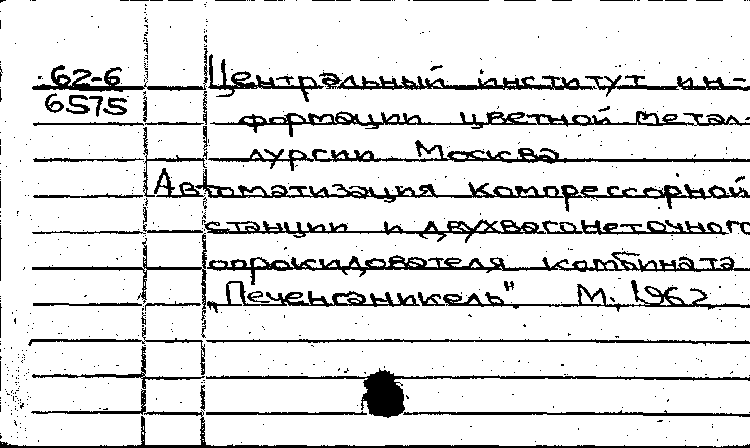 62-6
6575
Центральный институт ин-
формации цветной метал-
лургии Москва
Автоматизация компрессорной
станции и двухвагонеточного
опрокидователя комбината
„Печенганикель". М., 1962